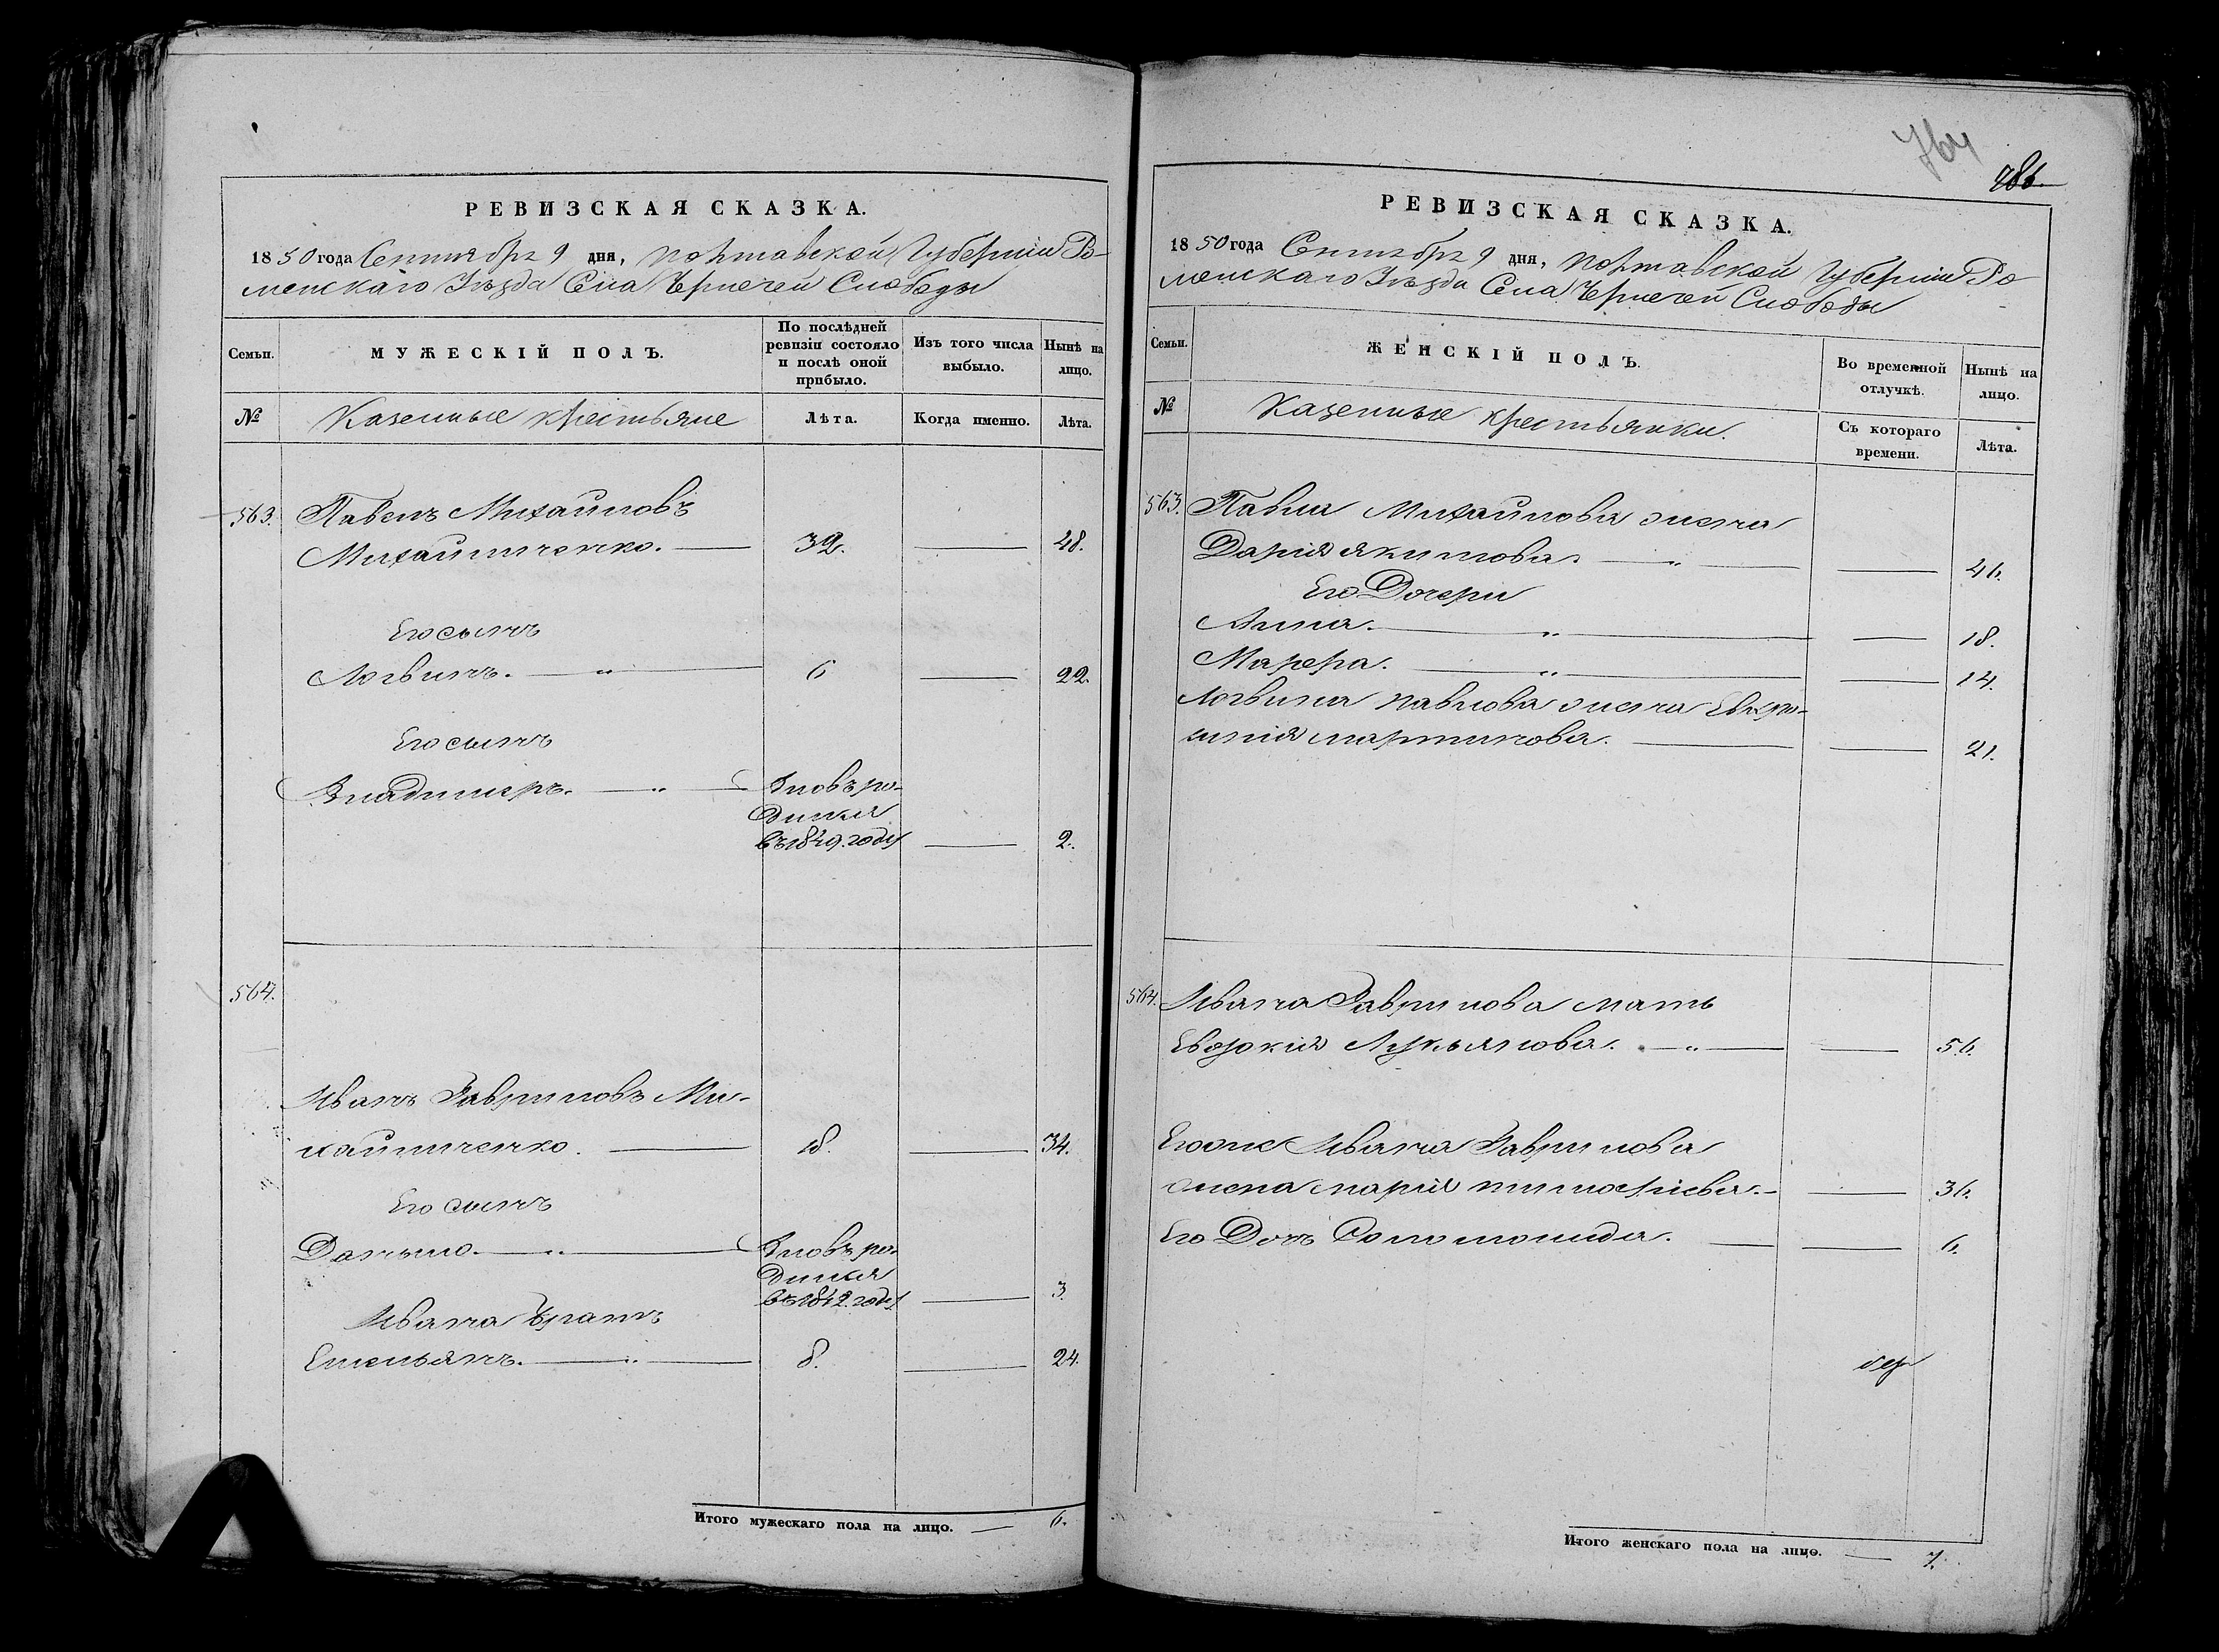 РЕВИЗСКАЯ СКАЗКА.
1850 года Сентября 9 дня, Полтавской Губернии Ро-
менскаго Уѣзда Села Чернечей Слободы
Семьи.
МУЖЕСКІЙ ПОЛЪ.
По послѣдней
ревизіи состояло
и послѣ оной
прибыло.
Изъ того числа
выбыло.
Нынѣ на
лицо.
№
Казенные крестьяне
Лѣта.
Когда именно.
Лѣта.
563. Павелъ Михайловъ
Михайличенко. 32. 48.
Его сынъ
Логвинъ. 6 22.
Его сынъ
Владимеръ. Вновь ро-
дился
въ 1849. году 2.
564.
Иванъ Гавриловъ Ми-
хайличенко. 18. 34.
Его сынъ
Данило. Вновь ро-
дился
въ 1842. году 3.
Ивана братъ
Емельянъ. 8. 24.
Итого мужескаго пола на лицо. 6.
764
786.
РЕВИЗСКАЯ СКАЗКА.
1850 года Сентября 9 дня, Полтавской Губерніи Ро
менскаго Уѣзда Села Чернечей Слободы
Семьи.
ЖЕНСКІЙ ПОЛЪ.
Во временной
отлучкѣ.
Нынѣ на
лицо.
№
Казенные крестьянки.
Съ котораго
времени.
Лѣта.
563. Павла Михайлова жена
Дарія Якимова. 46.
Его Дочери
Анна. 18.
Марфа. 14.
Логвина Павлова жена Евфро-
синія Мартинова. 21.
564. Ивана Гаврилова мать
Евдокія Лукьянова. 56.
Егоже Ивана Гаврилова
жена Марія Тимофіева. 36.
Его Дочь Соломонида. 6.
Итого женскаго пола на лицо. 7.